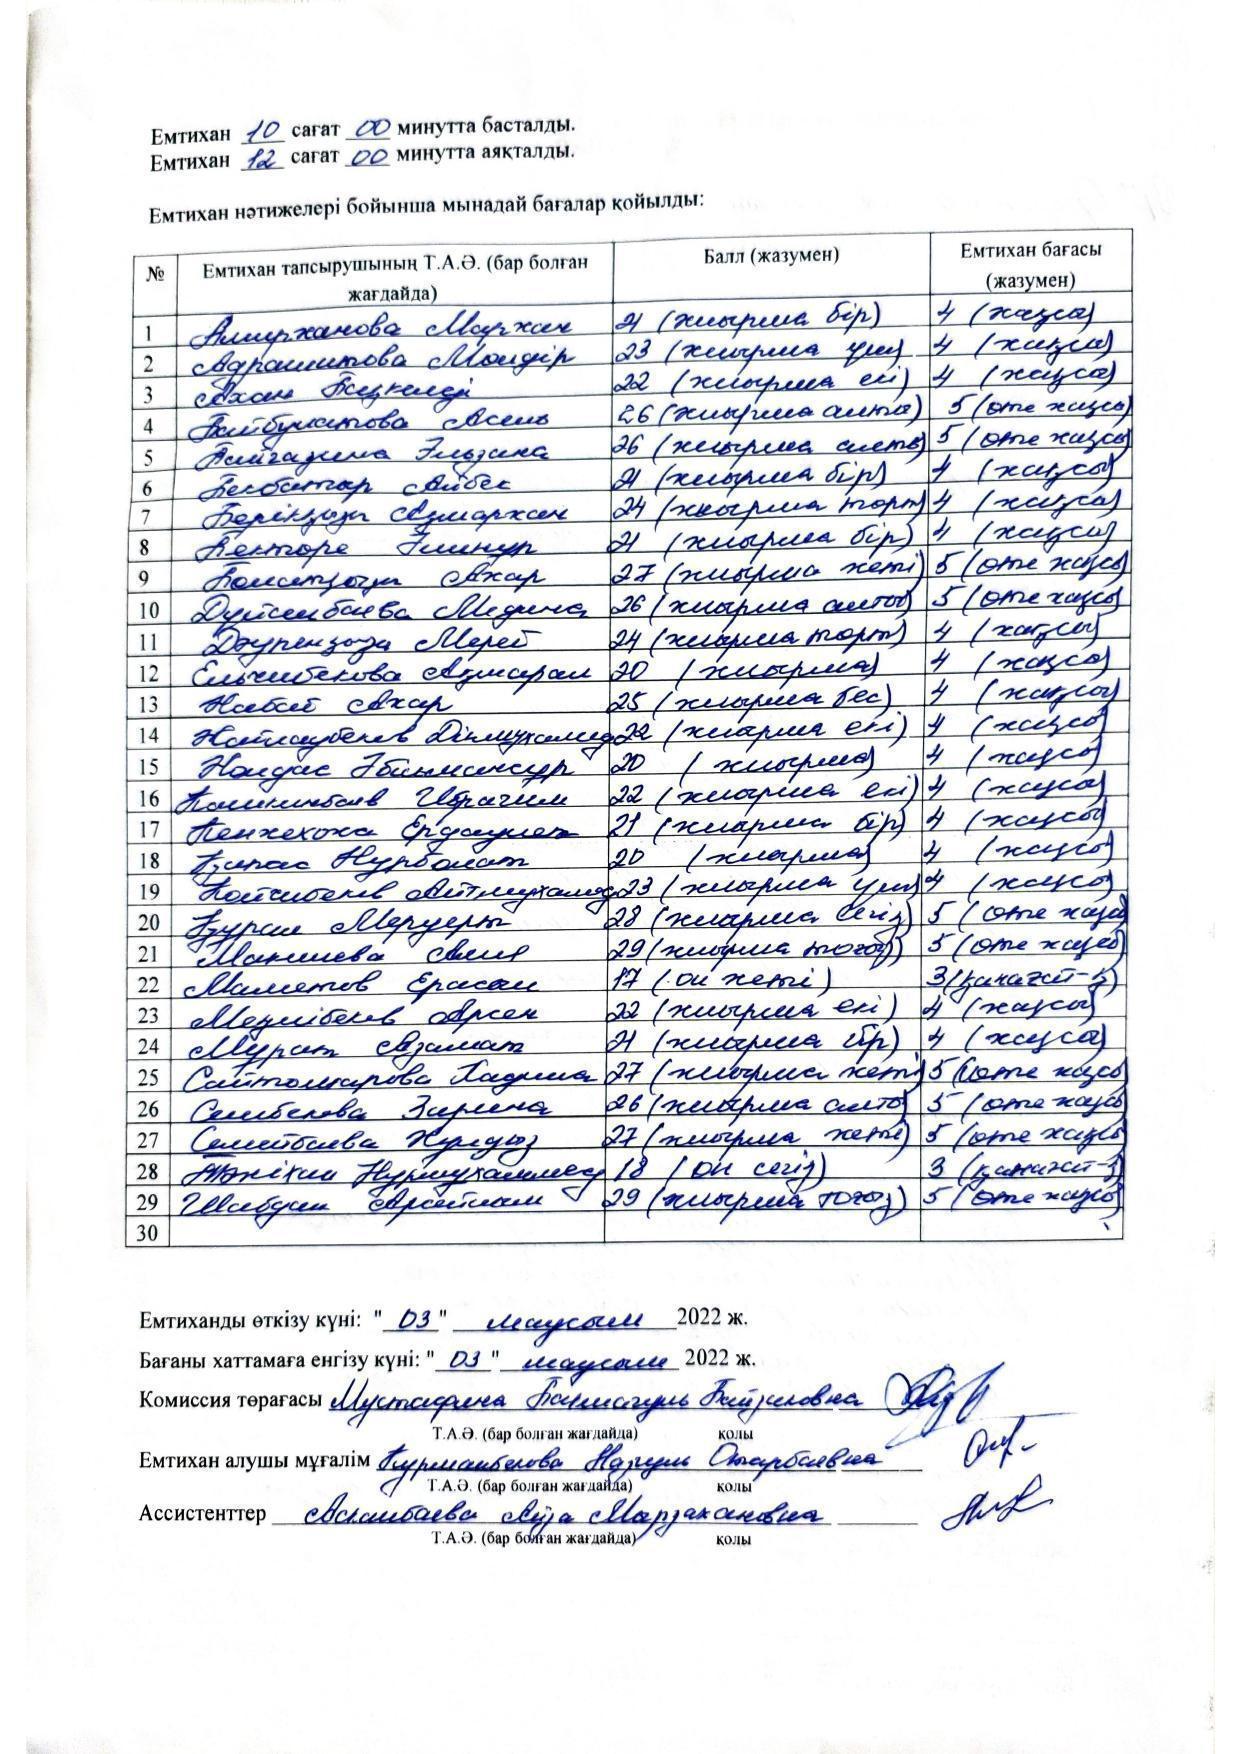 Емтихан 10 сағат 00 минутта басталды.
Емтихан 12 сағат 00 минутта аяқталды.
Емтихан нәтижелері бойынша мынадай бағалар қойылды:
№ Емтихан тапсырушының Т.А.Ә. (бар болған жағдайда) Балл (жазумен) Емтихан бағасы (жазумен)
1 Амиржанова Маржан 21 (жиырма бір) 4 (жақсы)
2 Мөлдір 23 (жиырма үш) 4 (жақсы)
3 22 (жиырма екі) 4 (жақсы)
4 Асель 26 (жиырма алты) 5 (өте жақсы)
5 26 (жиырма алты) 5 (өте жақсы)
6 Бекбатыр Айбек 21 (жиырма бір) 4 (жақсы)
7 Ақмаржан 24 (жиырма төрт) 4 (жақсы)
8 Бектөре Элинур 21 (жиырма бір) 4 (жақсы)
9 Болатқызы Ажар 27 (жиырма жеті) 5 (өте жақсы)
10 Дүйсенбаева Медина 26 (жиырма алты) 5 (өте жақсы)
11 Мерей 24 (жиырма төрт) 4 (жақсы)
12 Ельчибекова Ақмарал 20 (жиырма) 4 (жақсы)
13 Ажар 25 (жиырма бес) 4 (жақсы)
14 Дінмұхамед 22 (жиырма екі) 4 (жақсы)
15 Әбілмансұр 20 (жиырма) 4 (жақсы)
16 Ибрагим 22 (жиырма екі) 4 (жақсы)
17 Кенжехожа Ердәулет 21 (жиырма бір) 4 (жақсы)
18 Нұрболат 20 (жиырма) 4 (жақсы)
19 Айтмұхамед 23 (жиырма үш) 4 (жақсы)
20 Меруерт 28 (жиырма сегіз) 5 (өте жақсы)
21 29 (жиырма тоғыз) 5 (өте жақсы)
22 Маметов Ерасыл 17 (он жеті) 3 (қанағат-қ)
23 Арсен 22 (жиырма екі) 4 (жақсы)
24 Мұрат Азамат 21 (жиырма бір) 4 (жақсы)
25 27 (жиырма жеті) 5 (өте жақсы)
26 Сембекова Зарина 26 (жиырма алты) 5 (өте жақсы)
27 Семейбаева Жұлдыз 27 (жиырма жеті) 5 (өте жақсы)
28 Нұрмұхаммед 18 (он сегіз) 3 (қанағат-қ)
29 29 (жиырма тоғыз) 5 (өте жақсы)
30
Емтиханды өткізу күні: "03" маусым 2022 ж.
Бағаны хаттамаға енгізу күні: "03" маусым 2022 ж.
Комиссия төрағасы Мустафина
Т.А.Ә. (бар болған жағдайда) қолы
Емтихан алушы мұғалім Курманбекова Назгуль Отарбаевна
Т.А.Ә. (бар болған жағдайда) қолы
Ассистенттер
Т.А.Ә. (бар болған жағдайда) қолы